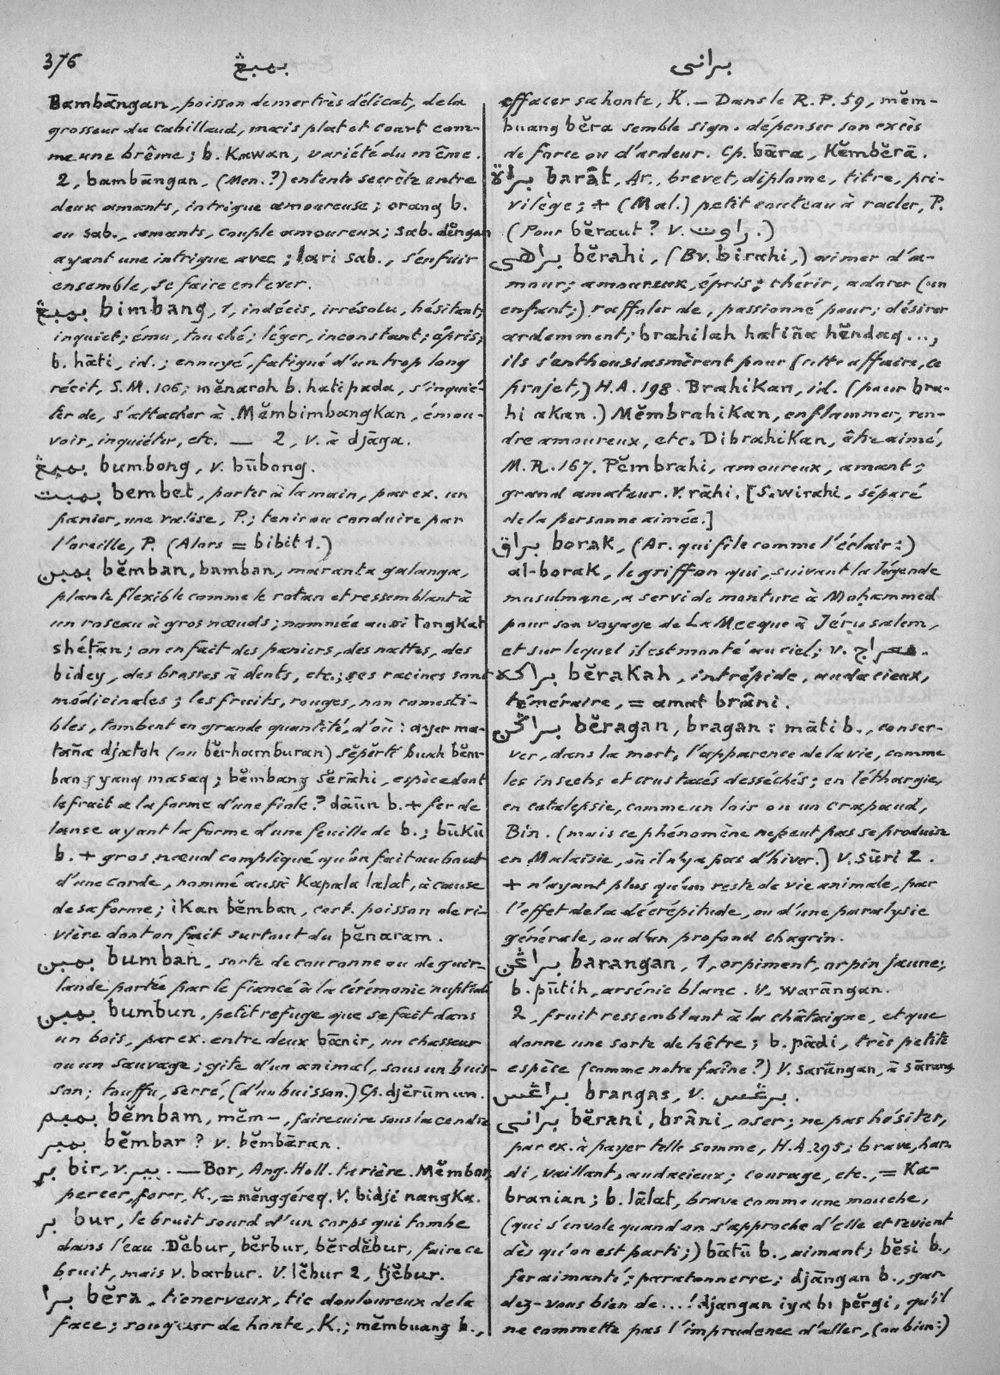 376
بمبڠ
براني
Bambāngan, poisson de mer très délicat, de la
grosseur du cabillaud, mais plat et court com-
me une brême; b. Kawan, variété du même.
2, bambāngan, (Men.?) entente secrète entre
deux amants, intrigue amoureuse; orang b.
ou sab., amants, couple amoureux; sab. dĕngan
ayant une intrigue avec; lari sab., s'enfuir
ensemble, se faire enlever.
بمبڠ bimbang, 1, indécis, irrésolu, hésitant;
inquiet; ému, touché; léger, inconstant; épris;
b. hāti, id.; ennuyé, fatigué d'un trop long
récit, S.M. 106; mĕnaroh b. hati pada, s'inquié-
ter de, s'attacher à. Mĕmbimbangkan, émou-
voir, inquiéter, etc. — 2, v. à djāga.
بمبڠ bumbong, v. būbong.
بمبت bembet, porter à la main, par ex. un
panier, une valise, P.; tenir ou conduire par
l'oreille, P. (Alors = bibit 1.)
بمبن bĕmban, bamban, maranta galanga,
plante flexible comme le rotan et ressemblant à
un roseau à gros nœuds; nommée aussi tongkat
shétān; on en fait des paniers, des nattes, des
bidey, des brasses à dents, etc.; ses racines sont
médicinales; les fruits, rouges, non comesti-
bles, tombent en grande quantité, d'où: ayer ma-
taña djatoh (ou bĕr-hamburan) sĕpĕrti buah bĕm-
bang yang masaq; bĕmbang sĕrahi, espèce dont
le fruit a la forme d'une fiole? dāūn b. + fer de
lance ayant la forme d'une feuille de b.; būkū
b. + gros nœud compliqué qu'on fait au bout
d'une corde, nommé aussi Kapala lalat, à cause
de sa forme; iKan bĕmban, cert. poisson de ri-
vière dont on fait surtout du pĕnaram.
بمبن bumban, sorte de couronne ou de guir-
lande portée par le fiancé à la cérémonie nuptiale
بمبن bumbun, petit refuge que se fait dans
un bois, par ex. entre deux bānir, un chasseur
ou un sauvage; gîte d'un animal, sous un buis-
son; touffu, serré, (d'un buisson.) Cp. djĕrūmun.
بمبم bĕmbam, mĕm—, faire cuire sous la cendre
بمبر bĕmbar? v. bĕmbāran.
بر bir, v. بير. — Bor, Ang. Holl. tarière. Mĕmbor,
percer, forer, K., = mĕnggéreq. V. bidji nangKa.
بر bur, le bruit sourd d'un corps qui tombe
dans l'eau. Dĕbur, bĕrbur, bĕrdĕbur, faire ce
bruit, mais v. barbur. V. lĕbur 2, tjĕbur.
برا bĕra, tic nerveux, tic douloureux de la
face; rougeur de honte, K.; mĕmbuang b.,
effacer sa honte, K. — Dans le R.P. 59, mĕm-
buang bĕra semble sign. dépenser son excès
de force ou d'ardeur. Cp. bāra, Kĕmbĕrā.
براة barāt, Ar., brevet, diplome, titre, pri-
vilège; + (Mal.) petit couteau à racler, P.
(Pour bĕraut? V. راوت.)
براهي bĕrahi, (Bv. birahi,) aimer d'a-
mour; amoureux, épris; chérir, adorer (un
enfant;) raffoler de, passionné pour; désirer
ardemment; brahilah hatiña hĕndaq ...,
ils s'enthousiasmèrent pour (cette affaire, ce
projet,) H.A. 198. BrahiKan, id. (pour bra-
hi aKan.) MĕmbrahiKan, enflammer, ren-
dre amoureux, etc. DibrahiKan, être aimé,
M.R. 167. Pĕmbrahi, amoureux, amant;
grand amateur. V. rāhi. [S. wirahi, séparé
de la personne aimée.]
براق boraK, (Ar. qui file comme l'éclair:)
al-boraK, le griffon qui, suivant la légende
musulmane, a servi de monture à Mohammed
pour son voyage de La Mecque à Jérusalem,
et sur lequel il est monté au ciel; v. معراج.
براكه bĕraKah, intrépide, audacieux,
téméraire, = amat brâni.
براڬن bĕragan, bragan: māti b., conser-
ver, dans la mort, l'apparence de la vie, comme
les insectes et crustacés desséchés; en léthargie,
en catalepsie, comme un loir ou un crapaud,
Bin. (mais ce phénomène ne peut pas se produire
en Malaisie, où il n'y a pas d'hiver.) V. sūri 2.
+ n'ayant plus qu'un reste de vie animale, par
l'effet de la décrépitude, ou d'une paralysie
générale, ou d'un profond chagrin.
براڠن barangan, 1, orpiment, orpin jaune;
b. pūtih, arsénic blanc. V. warāngan.
2, fruit ressemblant à la châtaigne, et que
donne une sorte de hêtre; b. pādi, très petite
espèce (comme notre faîne?) V. sarāngan, à sārang
براڠس brangas, v. برڠس.
براني bĕrani, brâni, oser; ne pas hésiter,
par ex. à payer telle somme, H.A. 295; brave, har-
di, vaillant, audacieux; courage, etc., = Ka-
branian; b. lālat, brave comme une mouche,
(qui s'envole quand on s'approche d'elle et revient
dès qu'on est parti;) bātū b., aimant; bĕsi b.,
fer aimanté; paratonnerre; djāngan b., gar-
dez-vous bien de...! djangan iya bi pĕrgi, qu'il
ne commette pas l'imprudence d'aller, (ou bien:)